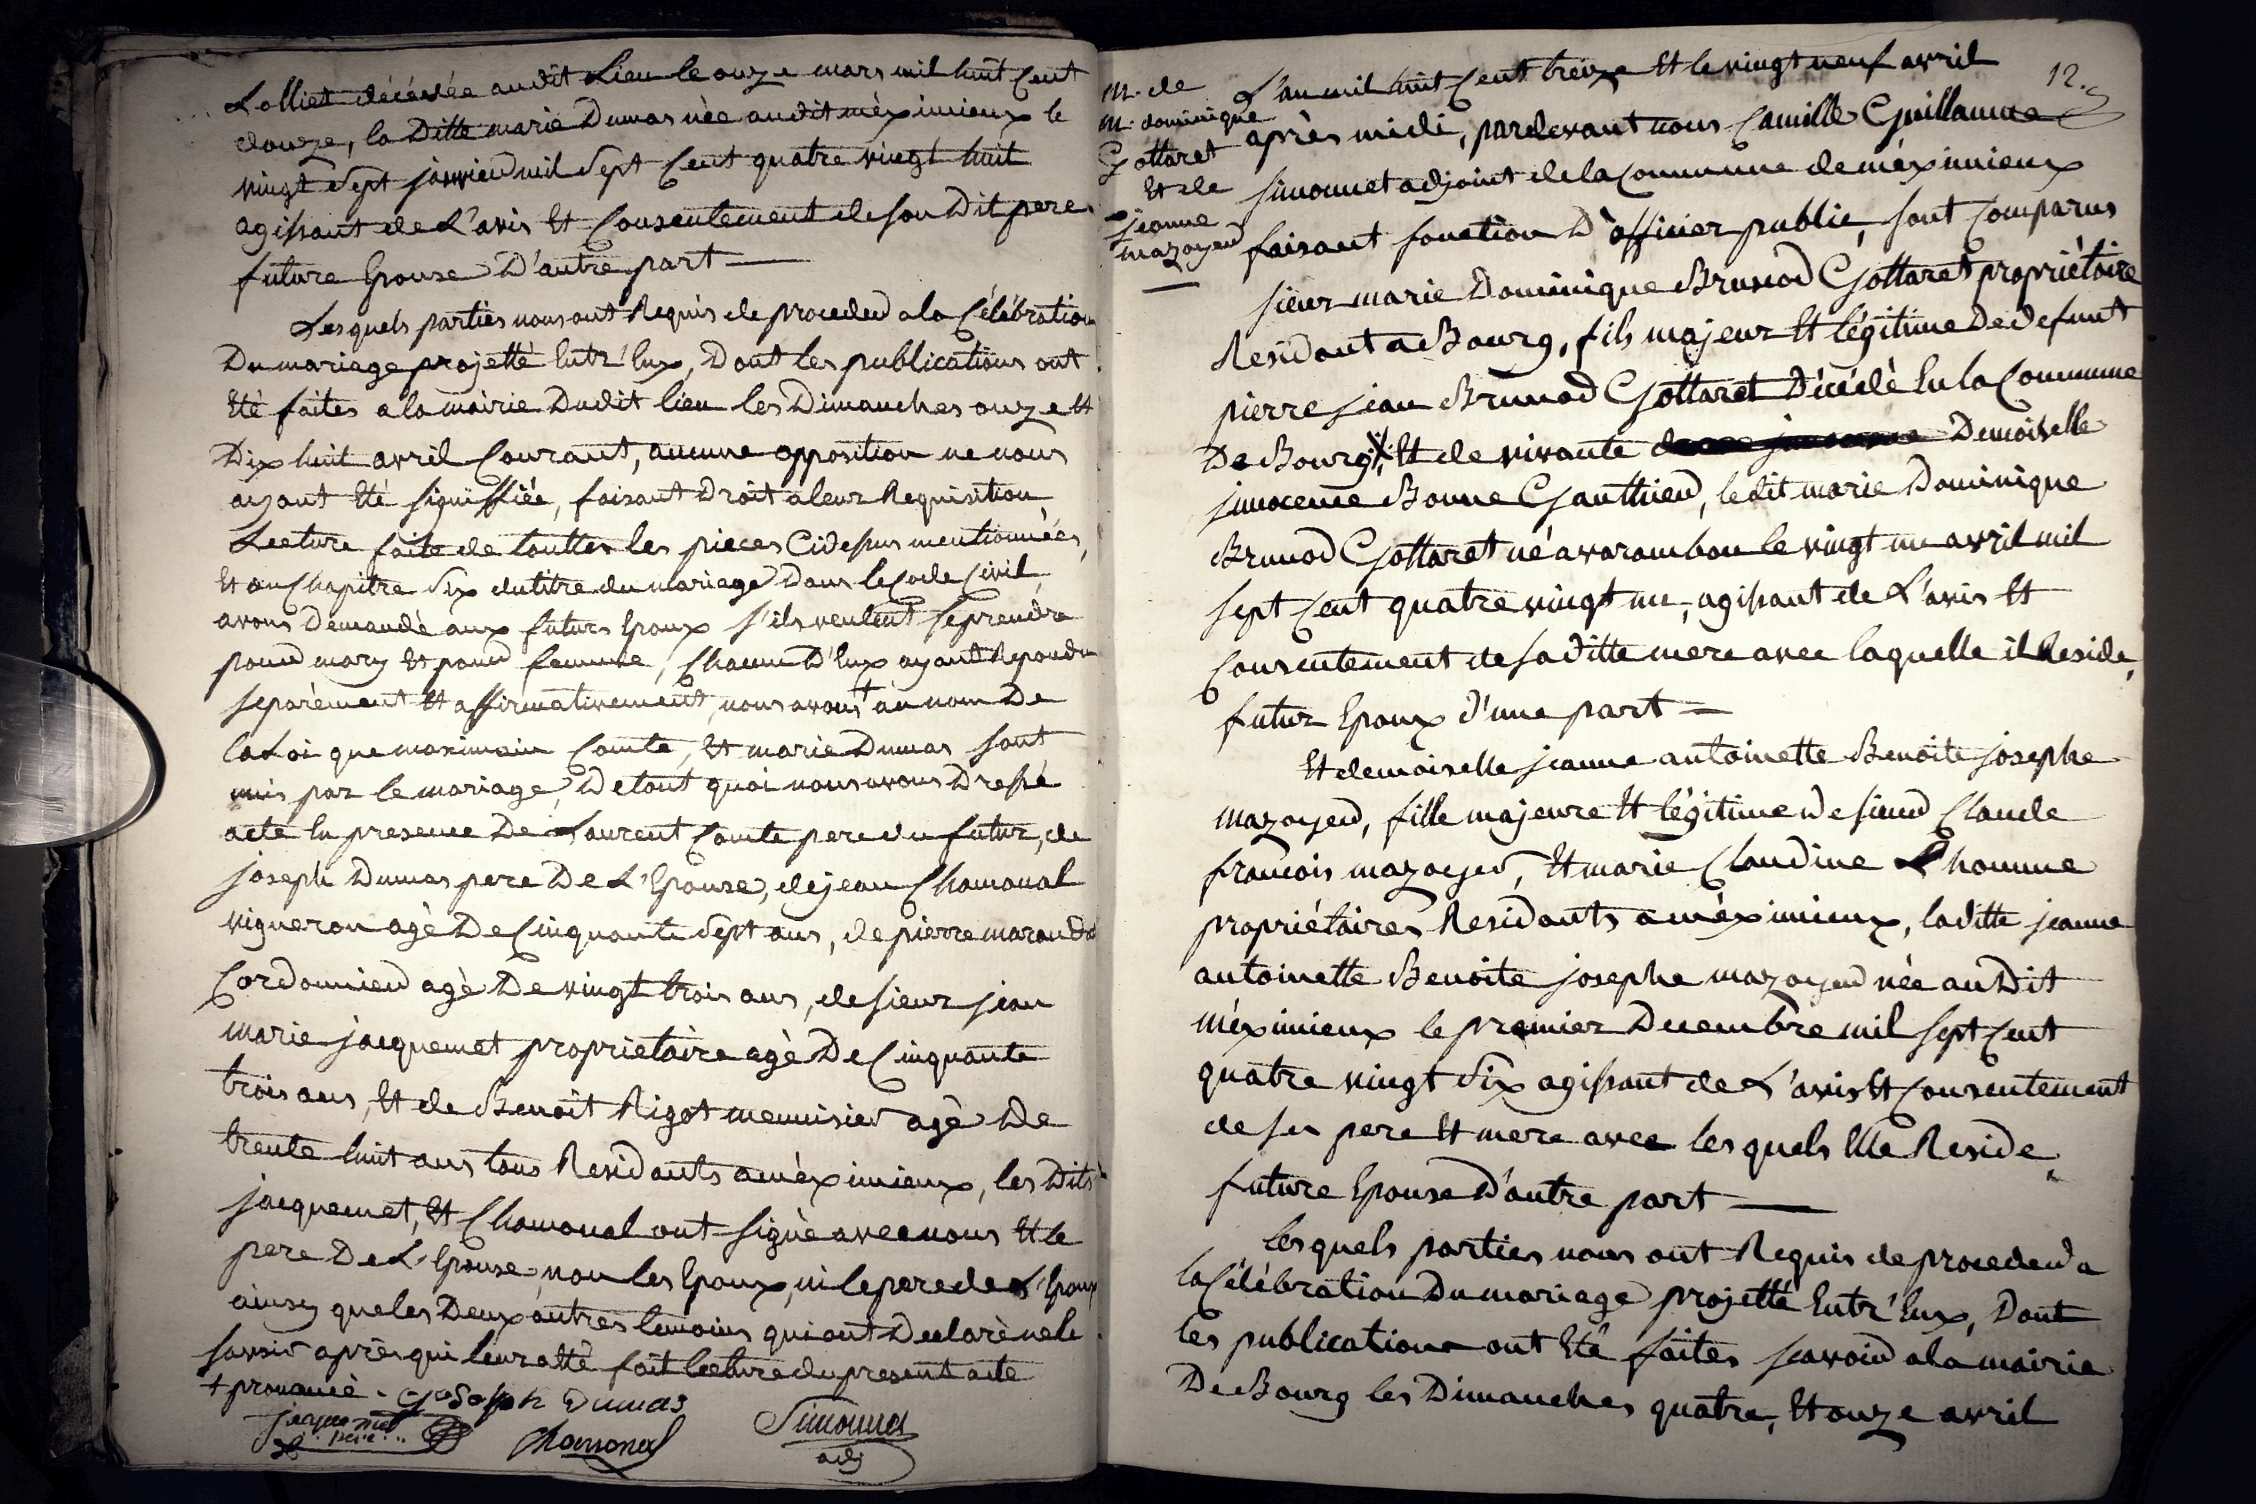 Lolliet décédée audit Lieu le onze mars mil huit Cent
douze, la Ditte marie Dumas née audit méximieux le
vingt Sept janvier mil Sept Cent quatre vingt huit
agissant de L'avis Et Consentement de son Dit pere
future Epouse D'autre part
Les quels parties nous ont Requis de proceder a la Célébration
Du mariage projetté Entr'Eux, Dont les publications ont
Eté faites a la mairie Dudit lieu les Dimanches onze et
Dix huit avril Courant, aucune opposition ne nous
ayant Eté signiffiée, faisant Droit a leur Requisition
Lecture faite de touttes les pieces Cidessus mentionnées,
Et au Chapitre Six du titre du mariage Dans le Code Civil,
avons Demandé aux futurs Epoux s'ils veulent se prendre
pour mary Et pour femme, Chacun D'Eux ayant Repondu
separément Et affirmativement, nous avons + au nom De
la Loi que maximain Comte, Et marie Dumas sont
unis par le mariage, De tout quoi nous avons Dressé
acte En presence De Laurent Comte pere du futur, de
joseph Dumas pere De L'Epouse, de jean Chamonal
vigneron agé De Cinquante Sept ans, de pierre
Cordonnier agé De vingt trois ans, de sieur jean
marie jacquemet propriétaire agé De Cinquante
trois ans, Et de Benoit Rigot menuisier agé De
trente huit ans tous Residants a méximieux, les Dits
jacquemet, Et Chamonal ont signé avec nous Et le
pere De L'Epouse, non les Epoux, ni le pere de L'Epoux
ainsy que les Deux autres temoins qui ont Declaré ne le
savoir après qui leur a été fait lecture du present acte
+ prononcé. Joseph Dumas
jacquemet
pere
Chamonal
Simonnet
adj
12.
m. de
m. dominique
Gottaret
Et de
jeanne
mazoyer
L'an mil huit Cent treize Et le vingt neuf avril
après midi, pardevant nous Camille Guillaume
simonnet adjoint de la Commune de méximieux
faisant fonction D'officier public, sont Comparus
sieur marie Dominique Brunod Gottaret propriétaire
Residant a Bourg, fils majeur Et légitime De defunt
pierre jean Brunod Gottaret Décédé En la Commune
De Bourg, Et de vivante Demoiselle
jnnocence Bonne Gauthier, ledit marie Dominique
Brunod Gottaret né a varambon le vingt un avril mil
sept Cent quatre vingt un, agissant de L'avis Et
Consentement de sa ditte mere avec laquelle il Reside,
futur Epoux d'une part
Et demoiselle jeanne antoinette Benoite josephe
mazoyer, fille majeure Et légitime De sieur Claude
françois mazoyer, Et marie Claudine Lhomme
propriétaires Residants a méximieux, la ditte jeanne
antoinette Benoite josephe mazoyer née au Dit
méximieux le premier Decembre mil sept Cent
quatre vingt Six agissant de L'avis Et Consentement
de ses pere Et mere avec les quels Elle Reside
future Epouse D'autre part
les quels parties nous ont Requis de proceder a
la Célébration Du mariage projetté Entr'Eux, Dont
les publications ont Eté faites scavoir a la mairie
De Bourg les Dimanches quatre, Et onze avril